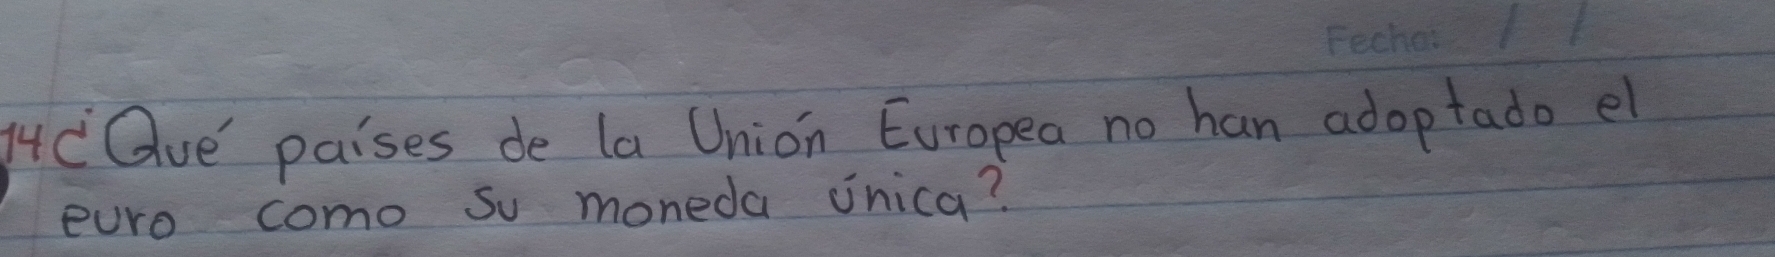 Fecha: / /
14 ¿Qué países de la Unión Europea no han adoptado el
euro como su moneda única?